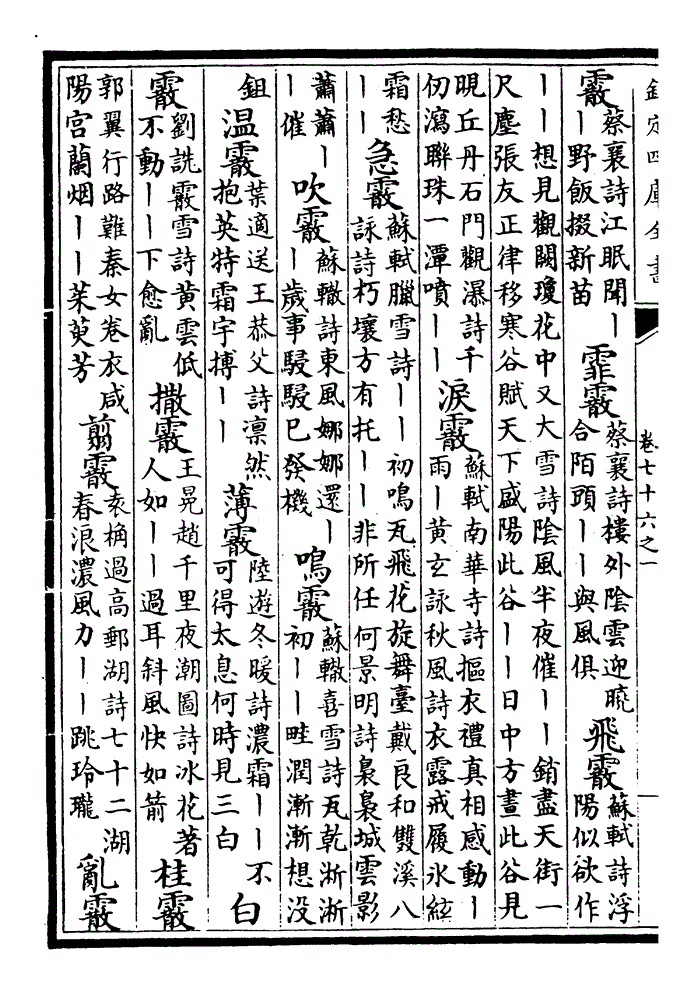 欽定四庫全書 卷七十六之一
霰 蔡襄詩江眠聞丨丨野飯掇新苗 霏霰 蔡襄詩樓外陰雲迎曉合陌頭丨丨與風俱 飛霰 蘇軾詩浮陽似欲作
丨丨想見觀闕瓊花中又大雪詩陰風半夜催丨丨銷盡天街一尺塵張友正律移寒谷賦天下盛陽此谷丨丨日中方晝此谷見
晛丘丹石門觀瀑詩千仞瀉聯珠一潭噴丨丨 淚霰 蘇軾南華寺詩摳衣禮真相感動丨雨丨黃玄詠秋風詩衣露戒履氷絃
霜愁丨丨 急霰 蘇軾臘雪詩丨丨初鳴瓦飛花旋舞臺戴良和雙溪八詠詩朽壤方有托丨丨非所任何景明詩裊裊城雲影
蕭蕭丨丨催 吹霰 蘇轍詩東風娜娜還丨丨歲事駸駸已發機 鳴霰 蘇轍喜雪詩瓦乾淅淅初丨丨畦潤漸漸想没
鉏 温霰 葉適送王恭父詩凛然抱英特霜宇摶丨丨 薄霰 陸遊冬暖詩濃霜丨丨不可得太息何時見三白 白
霰 劉詵霰雪詩黄雲低不動丨丨下愈亂 撒霰 王冕趙千里夜潮圖詩冰花著人如丨丨過耳斜風快如箭 桂霰
郭翼行路難秦女卷衣咸陽宫蘭烟丨丨茱萸芳 翦霰 袁桷過高郵湖詩七十二湖春浪濃風力丨丨跳玲瓏 亂霰